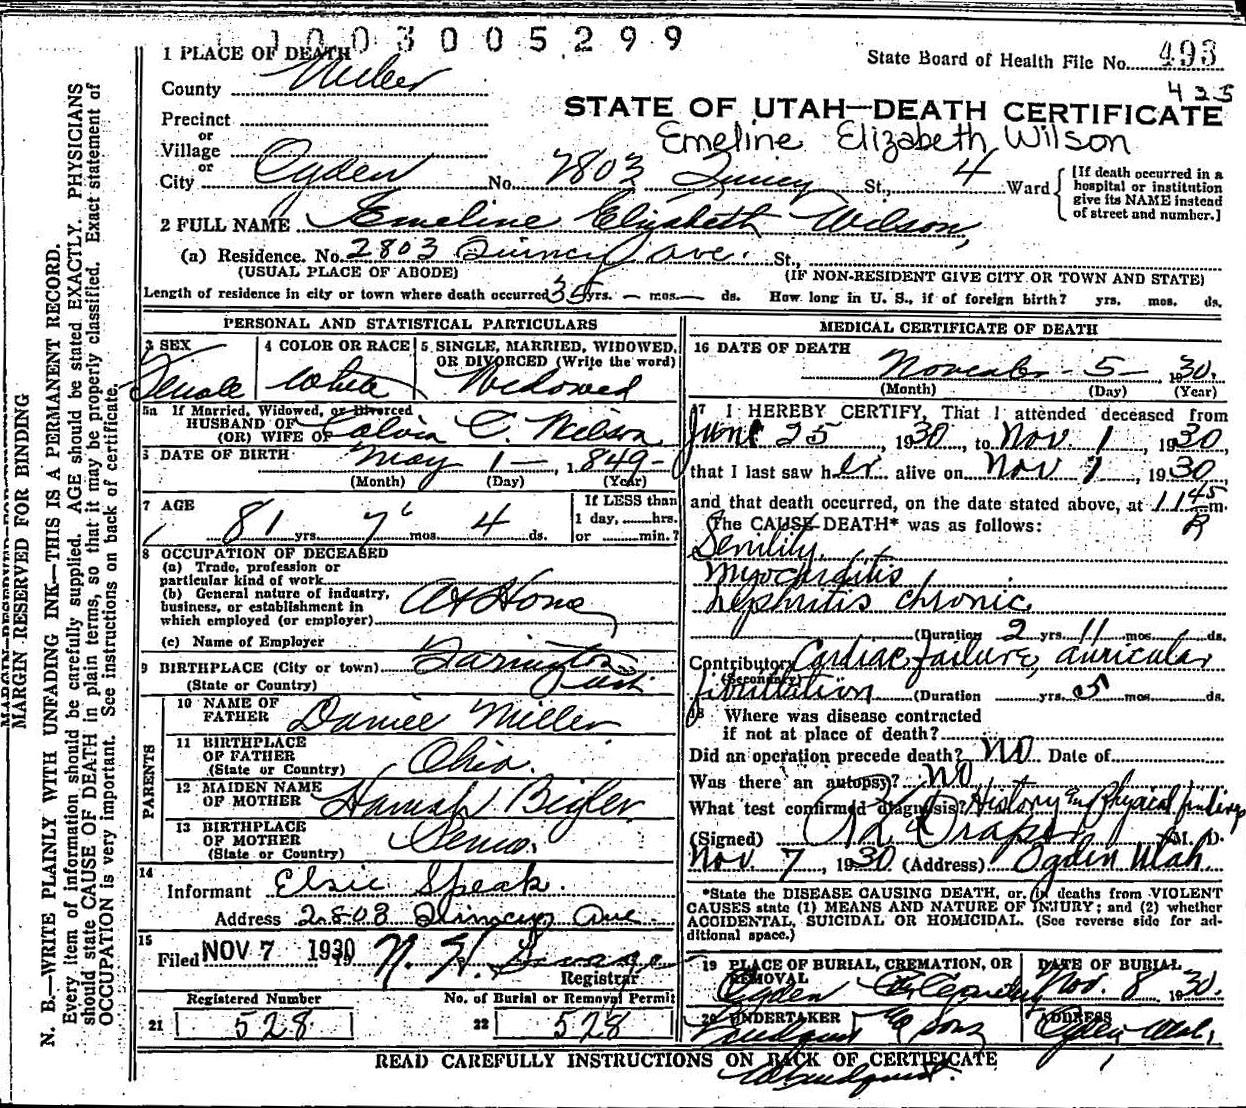 1003005299
1 PLACE OF DEATH
State Board of Health File No. 493
County Weber
425
STATE OF UTAH—DEATH CERTIFICATE
Precinct
Emeline Elizabeth Wilson
or
Village
or
City Ogden No. 2803 Quincy St., 4 Ward
[If death occurred in a
hospital or institution
give its NAME instead
of street and number.]
2 FULL NAME Emeline Elizabeth Wilson,
(a) Residence. No. 2803 Quincy Ave. St.,
(USUAL PLACE OF ABODE) (IF NON-RESIDENT GIVE CITY OR TOWN AND STATE)
Length of residence in city or town where death occurred 35 yrs. — mos. — ds. How long in U. S., if of foreign birth? yrs. mos. ds.
PERSONAL AND STATISTICAL PARTICULARS
3 SEX
Female
4 COLOR OR RACE
White
5 SINGLE, MARRIED, WIDOWED,
OR DIVORCED (Write the word)
Widowed
5a If Married, Widowed, or Divorced
HUSBAND OF
(OR) WIFE OF Calvin C. Wilson
6 DATE OF BIRTH May 1 — , 1849 —
(Month) (Day) (Year)
7 AGE
81 yrs. 6 mos. 4 ds.
If LESS than
1 day, hrs.
or min.?
8 OCCUPATION OF DECEASED
(a) Trade, profession or
particular kind of work
(b) General nature of industry,
business, or establishment in
which employed (or employer) At Home
(c) Name of Employer
9 BIRTHPLACE (City or town) Farington
(State or Country) Utah
PARENTS
10 NAME OF
FATHER Daniel Miller
11 BIRTHPLACE
OF FATHER
(State or Country) Ohio.
12 MAIDEN NAME
OF MOTHER Hannah Bigler
13 BIRTHPLACE
OF MOTHER
(State or Country) Penn.
14
Informant Elsie Speak.
Address 2803 Quincy Ave
15
Filed NOV 7 1930 19
Registrar
Registered Number
21 528
No. of Burial or Removal Permit
22 528
MEDICAL CERTIFICATE OF DEATH
16 DATE OF DEATH
November - 5 - , 1930.
(Month) (Day) (Year)
17 I HEREBY CERTIFY, That I attended deceased from
June 25, 1930, to Nov. 1, 1930,
that I last saw her alive on Nov 1, 1930
and that death occurred, on the date stated above, at 11 45 m.
P
The CAUSE DEATH* was as follows:
Senility.
Myocarditis
Nephritis chronic
(Duration 2 yrs. 11 mos. ds.
Contributory Cardiac failure, auricular
(Secondary)
fibrillation (Duration yrs. 5 mos. ds.
18 Where was disease contracted
if not at place of death?
Did an operation precede death? NO Date of
Was there an autopsy? NO
What test confirmed diagnosis? History and Physical findings
(Signed) Draper M. D.
Nov. 7, 1930 (Address) Ogden Utah.
*State the DISEASE CAUSING DEATH, or, in deaths from VIOLENT
CAUSES state (1) MEANS AND NATURE OF INJURY; and (2) whether
ACCIDENTAL, SUICIDAL OR HOMICIDAL. (See reverse side for ad-
ditional space.)
19 PLACE OF BURIAL, CREMATION, OR
REMOVAL
Ogden City Cemetery
DATE OF BURIAL
Nov. 8, 1930.
20 UNDERTAKER
Lindquist & Sons
ADDRESS
Ogden Utah,
READ CAREFULLY INSTRUCTIONS ON BACK OF CERTIFICATE
Lindquist.
MARGIN RESERVED FOR BINDING
N. B.—WRITE PLAINLY WITH UNFADING INK—THIS IS A PERMANENT RECORD.
Every item of information should be carefully supplied. AGE should be stated EXACTLY. PHYSICIANS
should state CAUSE OF DEATH in plain terms, so that it may be properly classified. Exact statement of
OCCUPATION is very important. See instructions on back of certificate.